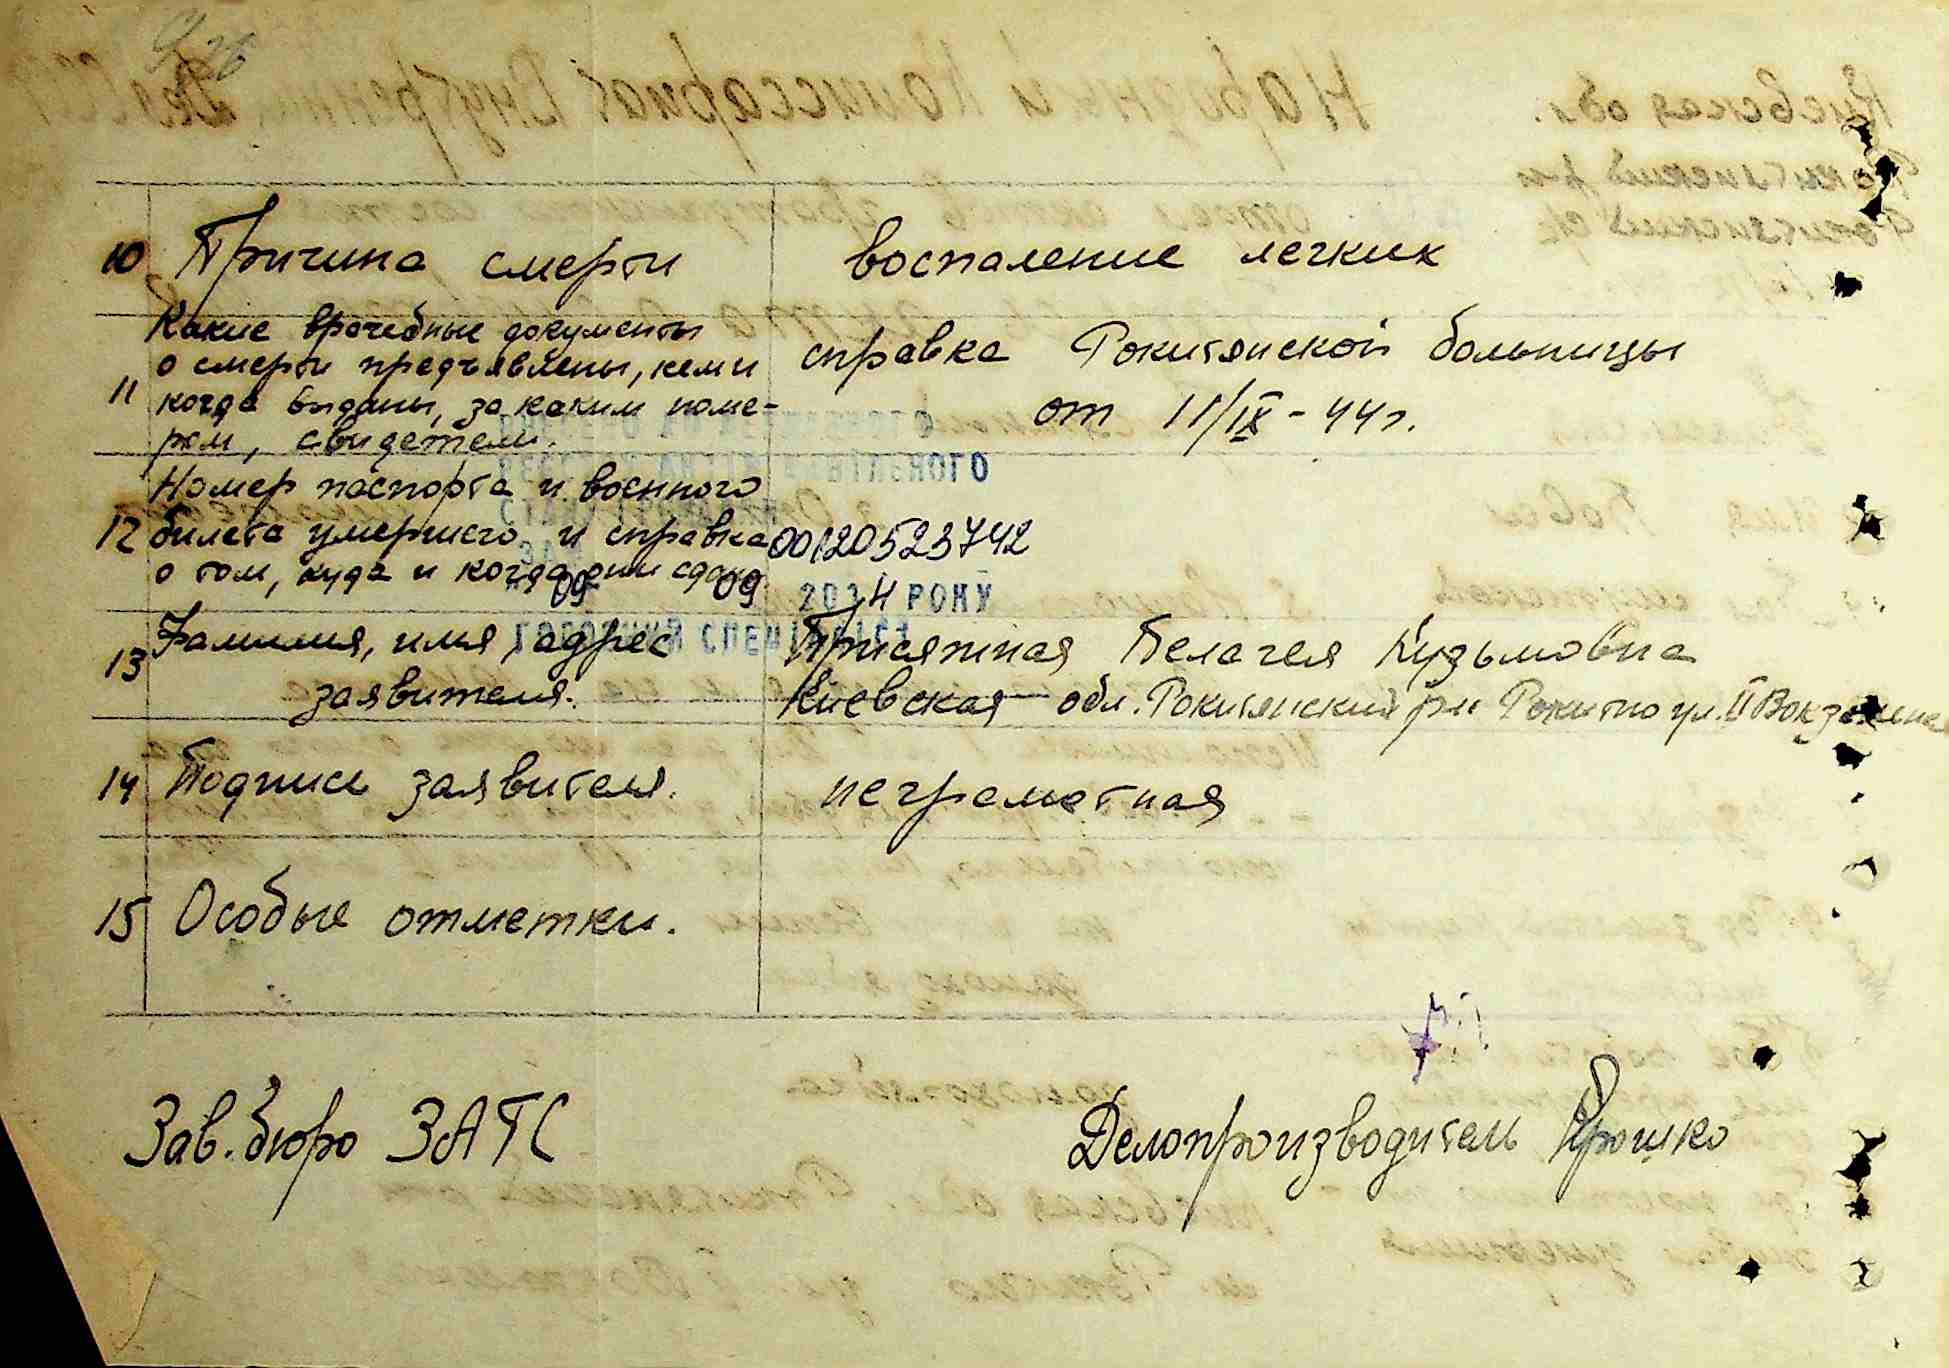 10 Причина смерти воспаление легких
Какие врачебные документы
о смерти предъявлены, кем и
11 когда выданы, за каким номе-
ром, свидетели.
справка Рокитянской больницы
от 11/IX - 44 г.
Номер паспорта и военного
12 билета умершего и справка
о том, куда и когда они сданы
00120523742
СТАНУ
09 09 2014 РОКУ
ГОЛОВНИЙ СПЕЦІАЛІСТ
13 Фамилия, имя, адрес
заявителя.
Присяжная Пелагея Кузьмовна
Киевская обл. Рокитянский р-н Рокитно ул. II Вокзальная
14 Подпись заявителя. неграмотная
15 Особые отметки.
Зав. бюро ЗАГС Делопроизводитель